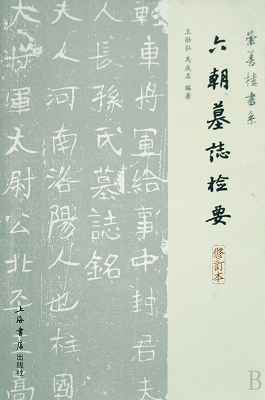 崇善樓書系
六朝墓誌检要
修訂本
王壯弘 馬成名 編著
輕車將軍給事中封君夫
人長孫氏墓誌銘
夫人河南洛陽人也柱國
大將軍太尉公北平王高
上海書店出版社
B